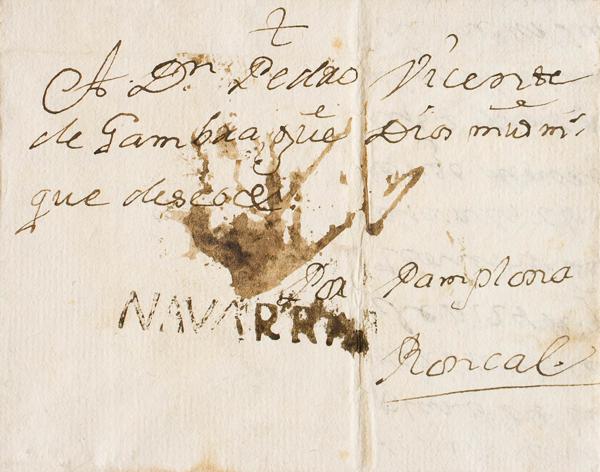 A Dn Pedro Vicente
de Gambra, que Dios
que deseo
Por Pamplona
NAVARRA
Roncal.